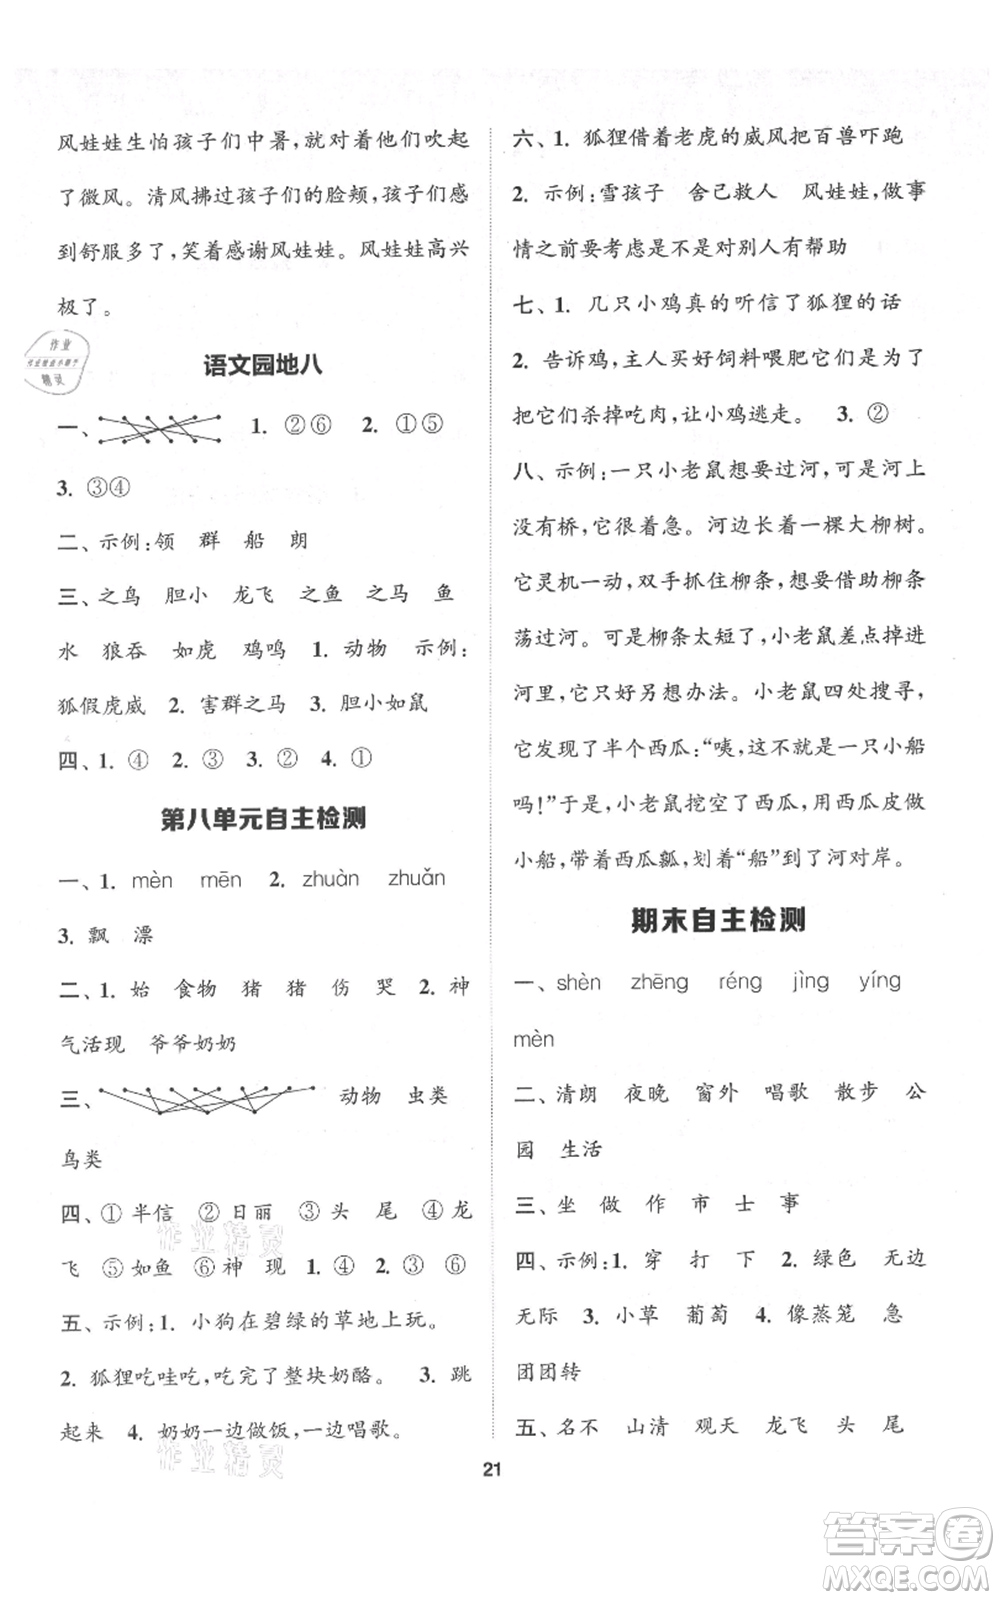 风娃娃生怕孩子们中暑,就对着他们吹起
了微风。清风拂过孩子们的脸颊,孩子们感
到舒服多了,笑着感谢风娃娃。风娃娃高兴
极了。
作业
精灵
语文园地八
一、 1. ②⑥ 2. ①⑤
3. ③④
二、示例:领 群 船 朗
三、之鸟 胆小 龙飞 之鱼 之马 鱼
水 狼吞 如虎 鸡鸣 1. 动物 示例:
狐假虎威 2. 害群之马 3. 胆小如鼠
四、1. ④ 2. ③ 3. ② 4. ①
第八单元自主检测
一、1. mèn mēn 2. zhuàn zhuǎn
3. 飘 漂
二、1. 始 食物 猪 猪 伤 哭 2. 神
气活现 爷爷奶奶
三、 动物 虫类
鸟类
四、①半信 ②日丽 ③头 尾 ④龙
飞 ⑤如鱼 ⑥神 现 1. ④ 2. ③ ⑥
五、示例:1. 小狗在碧绿的草地上玩。
2. 狐狸吃哇吃,吃完了整块奶酪。 3. 跳
起来 4. 奶奶一边做饭,一边唱歌。
作业精灵
作业精灵
六、1. 狐狸借着老虎的威风把百兽吓跑
2. 示例:雪孩子 舍己救人 风娃娃,做事
情之前要考虑是不是对别人有帮助
七、1. 几只小鸡真的听信了狐狸的话
2. 告诉鸡,主人买好饲料喂肥它们是为了
把它们杀掉吃肉,让小鸡逃走。 3. ②
八、示例:一只小老鼠想要过河,可是河上
没有桥,它很着急。河边长着一棵大柳树。
它灵机一动,双手抓住柳条,想要借助柳条
荡过河。可是柳条太短了,小老鼠差点掉进
河里,它只好另想办法。小老鼠四处搜寻,
它发现了半个西瓜:“咦,这不就是一只小船
吗!”于是,小老鼠挖空了西瓜,用西瓜皮做
小船,带着西瓜瓤,划着“船”到了河对岸。
期末自主检测
一、shèn zhēng réng jìng yíng
mèn
二、清朗 夜晚 窗外 唱歌 散步 公
园 生活
三、坐 做 作 市 士 事
四、示例:1. 穿 打 下 2. 绿色 无边
无际 3. 小草 葡萄 4. 像蒸笼 急
团团转
五、名不 山清 观天 龙飞 头 尾
21
答案卷
MXQE.COM